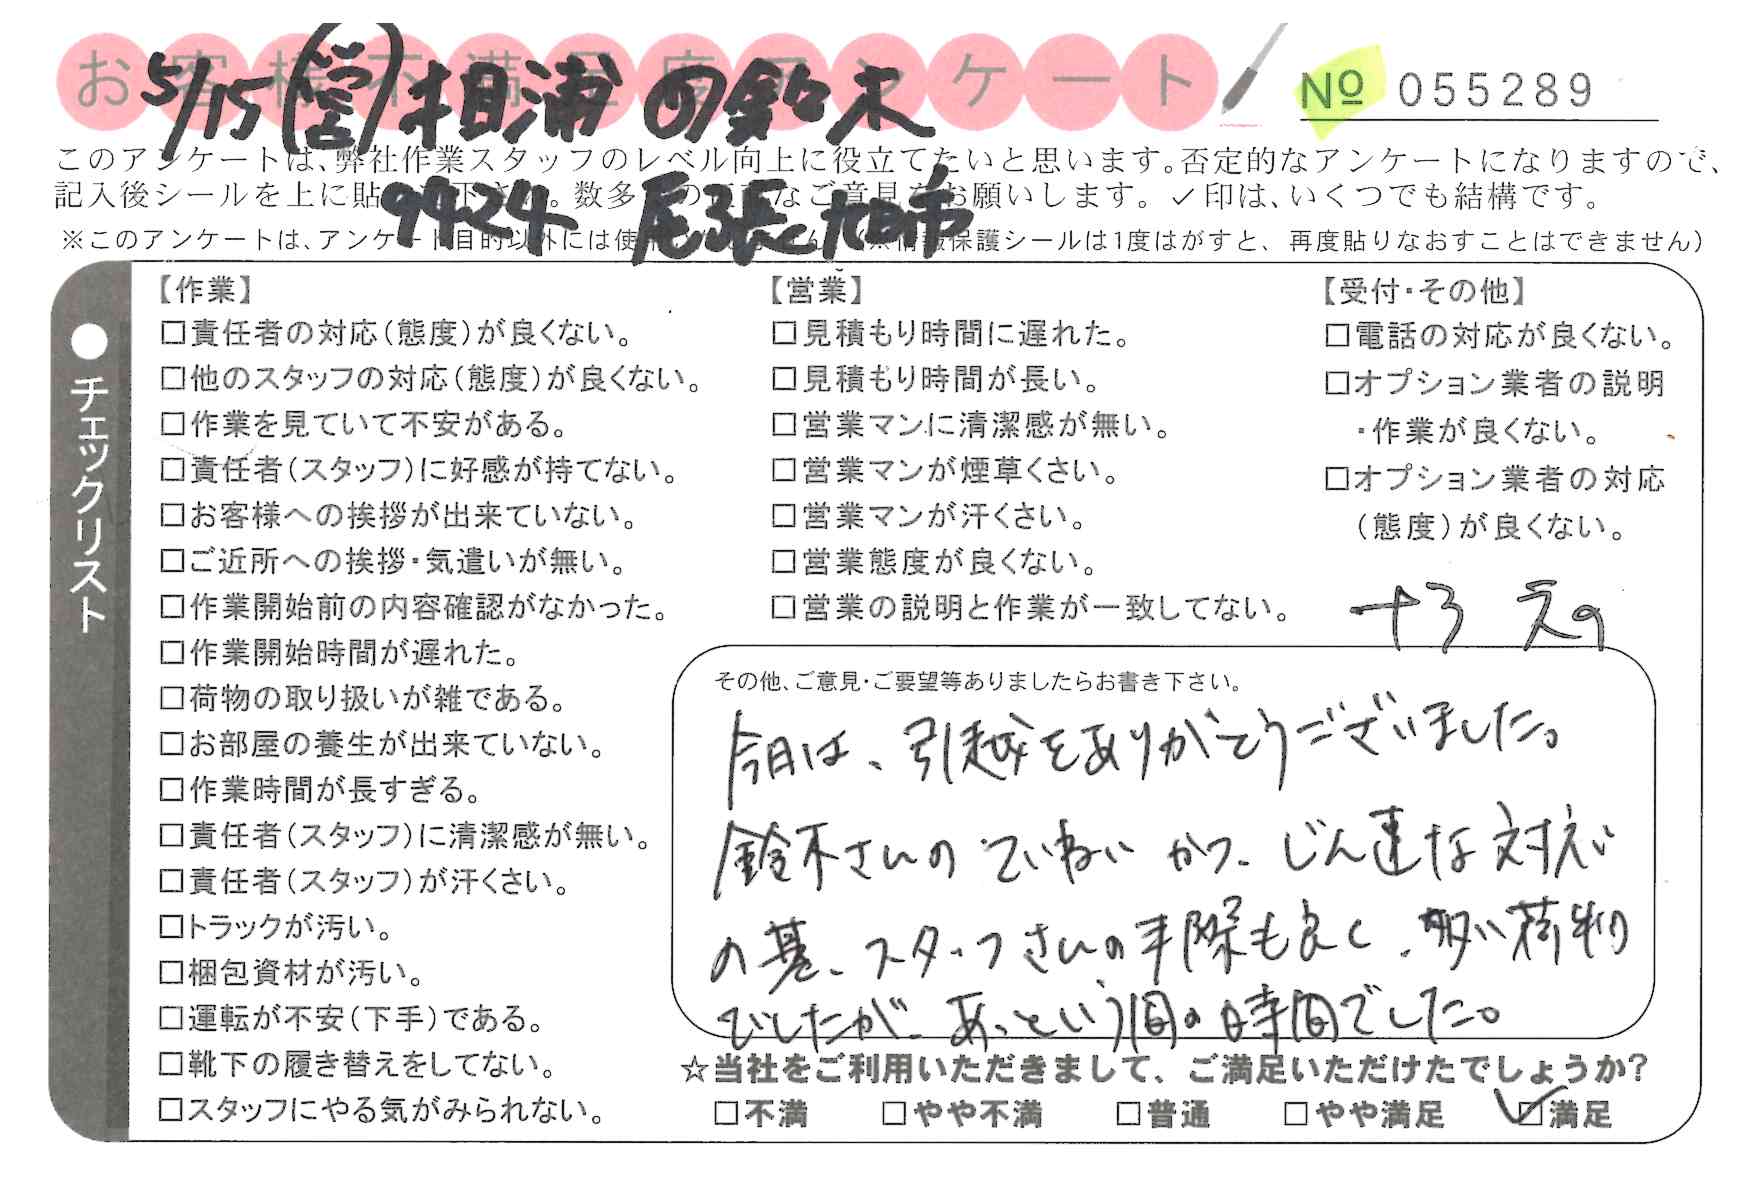 お客様不満足度アンケート
№ 055289
5/15 相浦 の 鈴木
このアンケートは、弊社作業スタッフのレベル向上に役立てたいと思います。否定的なアンケートになりますので、
記入後シールを上に貼 下さい。数多 の ご意見をお願いします。✓印は、いくつでも結構です。
9424 尾張旭市
※このアンケートは、アンケート目的以外には使 保護シールは1度はがすと、再度貼りなおすことはできません）
●チェックリスト
【作業】
□責任者の対応（態度）が良くない。
□他のスタッフの対応（態度）が良くない。
□作業を見ていて不安がある。
□責任者（スタッフ）に好感が持てない。
□お客様への挨拶が出来ていない。
□ご近所への挨拶・気遣いが無い。
□作業開始前の内容確認がなかった。
□作業開始時間が遅れた。
□荷物の取り扱いが雑である。
□お部屋の養生が出来ていない。
□作業時間が長すぎる。
□責任者（スタッフ）に清潔感が無い。
□責任者（スタッフ）が汗くさい。
□トラックが汚い。
□梱包資材が汚い。
□運転が不安（下手）である。
□靴下の履き替えをしてない。
□スタッフにやる気がみられない。
【営業】
□見積もり時間に遅れた。
□見積もり時間が長い。
□営業マンに清潔感が無い。
□営業マンが煙草くさい。
□営業マンが汗くさい。
□営業態度が良くない。
□営業の説明と作業が一致してない。
【受付・その他】
□電話の対応が良くない。
□オプション業者の説明
・作業が良くない。
□オプション業者の対応
（態度）が良くない。
その他、ご意見・ご要望等ありましたらお書き下さい。
今日は、引越をありがとうございました。
鈴木さんのていねいかつ、じん速な対応
の基、スタッフさんの手際も良く、多い荷物
でしたが、あっという間の時間でした。
☆当社をご利用いただきまして、ご満足いただけたでしょうか？
□不満 □やや不満 □普通 □やや満足 ☑満足